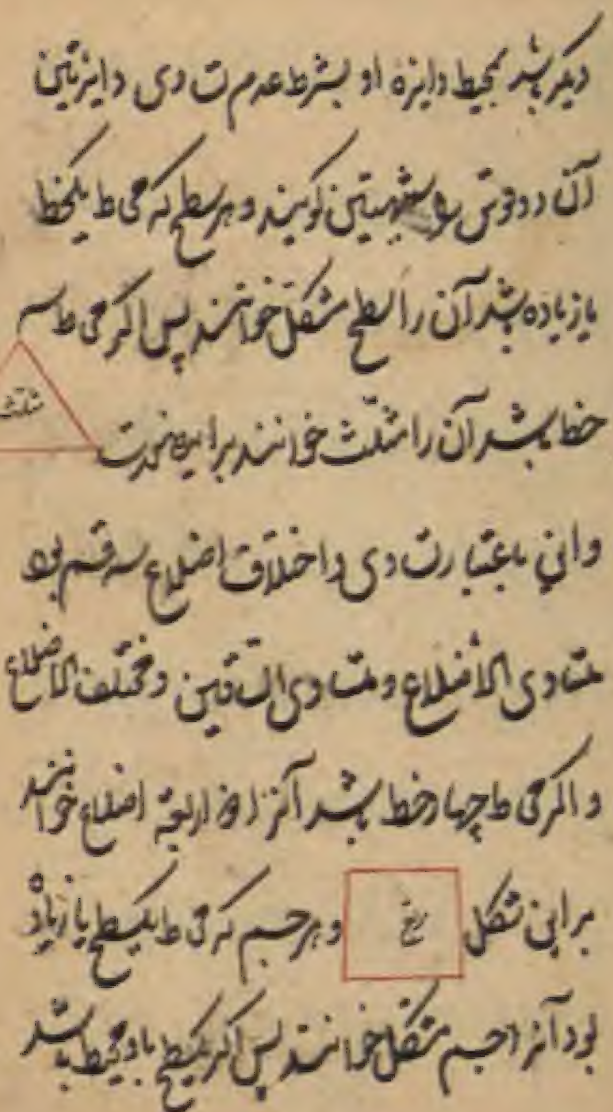 دیگر باشد بمحیط دایره او بشرط عدم تساوی دایرتین
آن دو قوس را شبیهتین گویند و هر سطح که محاط بیکخط
یا زیاده باشد آن را سطح مشکل خوانند پس اگر محاط سه
خط باشد آن را مثلث خوانند براین صورت
مثلث
و این باعتبار تساوی و اختلاف اضلاع سه قسم بود
متساوی الاضلاع و متساوی الساقین و مختلف الاضلاع
و اگر محاط چهار خط باشد آنرا ذو اربعة اضلاع خوانند
براین شکل مربع و هر جسم که محاط بیکسطح یا زیاده
بود آنرا جسم مشکل خوانند پس اگر یکسطح باو محیط باشد